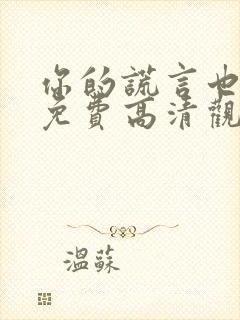 你的謊言也
免費高清觀
溫蘇